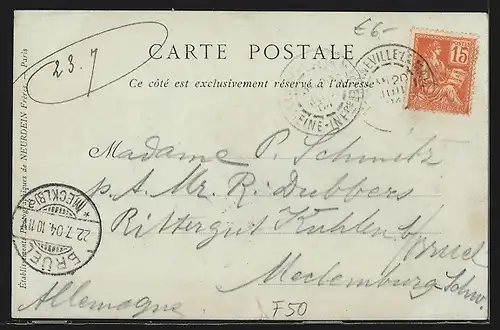 £6-
23.7
CARTE POSTALE
Ce côté est exclusivement réservé à l'adresse
15
POSTES
Madame P. Schmitz
p. A. Mr. R. Dubbers
Rittergut Kuhlen b/Bruel
Meclemburg Schw.
Allemagne
F50
BRÜEL
22.7.04.10-11
*(MECKLB)R
SEINE-INF
20
Etablissements Photographiques de NEURDEIN Frères. - Paris